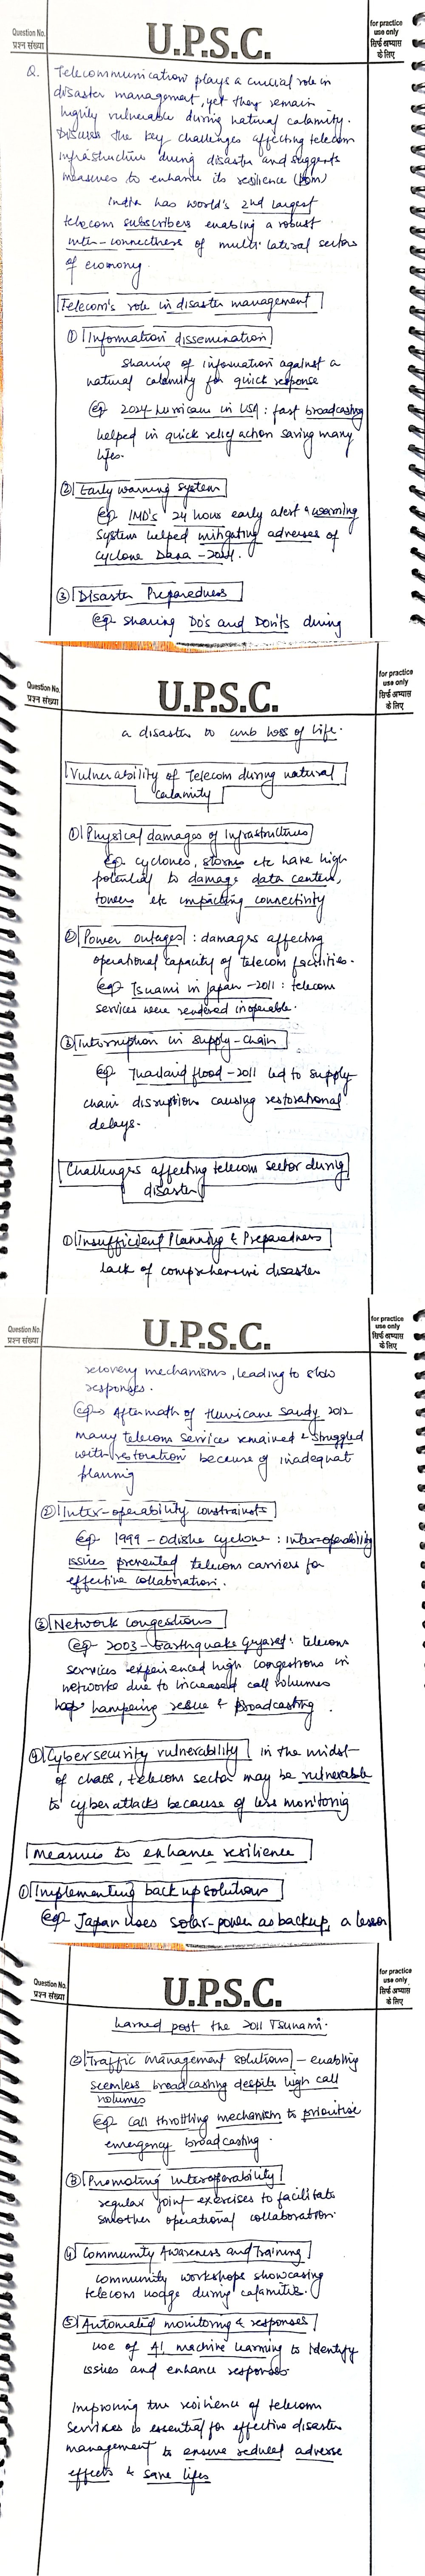 Question No.
प्रश्न संख्या
U.P.S.C.
for practice
use only
सिर्फ अभ्यास
के लिए
Q. Telecommunication plays a crucial role in
disaster management, yet they remain
highly vulnerable during natural calamity.
Discuss the key challenges affecting telecom
infrastructure during disaster and suggests
measures to enhance its resilience
India has world's 2nd largest
telecom subscribers enabling a robust
inter-connectness of multi lateral sectors
of economy.
Telecom's role in disaster management
① Information dissemination
sharing of information against a
natural calamity for quick response
eg 2024 hurricane in USA : fast broadcasting
helped in quick relief action saving many
lifes.
② Early warning system
eg IMD's 24 hour early alert & warning
system helped mitigating adverses of
cyclone Dana - 2024.
③ Disaster Preparedness
eg sharing Do's and Don'ts during
Question No.
प्रश्न संख्या
U.P.S.C.
for practice
use only
सिर्फ अभ्यास
के लिए
a disaster to curb loss of life.
Vulnerability of Telecom during natural
calamity
① Physical damages of Infrastructures
eg cyclones, storms etc have high
potential to damage data centers,
towers etc impacting connectivity
② Power outages : damages affecting
operational capacity of telecom facilities.
eg Tsunami in Japan - 2011 : telecom
services were rendered inoperable.
③ Interruption in supply-chain
eg Thailand flood - 2011 led to supply
chain disruptions causing restorational
delays.
Challenges affecting telecom sector during
disaster
① Insufficient Planning & Preparedness
lack of comprehensive disaster
Question No.
प्रश्न संख्या
U.P.S.C.
for practice
use only
सिर्फ अभ्यास
के लिए
recovery mechanisms, leading to slow
responses.
eg Aftermath of Hurricane Sandy 2012
many telecom services remained & struggled
with restoration because of inadequate
planning
② Inter-operability constraints
eg 1999 - Odisha cyclone : inter-operability
issues prevented telecom carriers for
effective collaboration.
③ Network congestions
eg 2003 - Earthquake Gujarat : telecom
services experienced high congestions in
networks due to increased call volumes
hampering rescue & broadcasting.
④ Cybersecurity vulnerability in the midst
of chaos, telecom sector may be vulnerable
to cyber attacks because of less monitoring
Measures to enhance resilience
① Implementing back up solutions
eg Japan uses solar-power as backup, a lesson
Question No.
प्रश्न संख्या
U.P.S.C.
for practice
use only
सिर्फ अभ्यास
के लिए
learned post the 2011 Tsunami.
② Traffic management solutions - enabling
seemless broadcasting despite high call
volumes
eg call throttling mechanism to prioritise
emergency broadcasting.
③ Promoting interoperability
regular joint-exercises to facilitate
smoother operational collaboration.
④ Community Awareness and Training
community workshops showcasing
telecom usage during calamities.
⑤ Automated monitoring & responses
use of AI machine learning to identify
issues and enhance responses.
Improving the resilience of telecom
services is essential for effective disaster
management to ensure reduced adverse
effects & save lifes